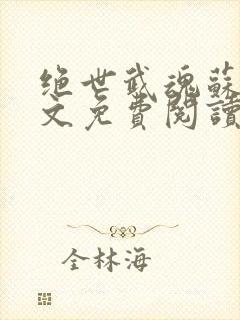 绝世武魂蘇
文免費閱讀
全林海